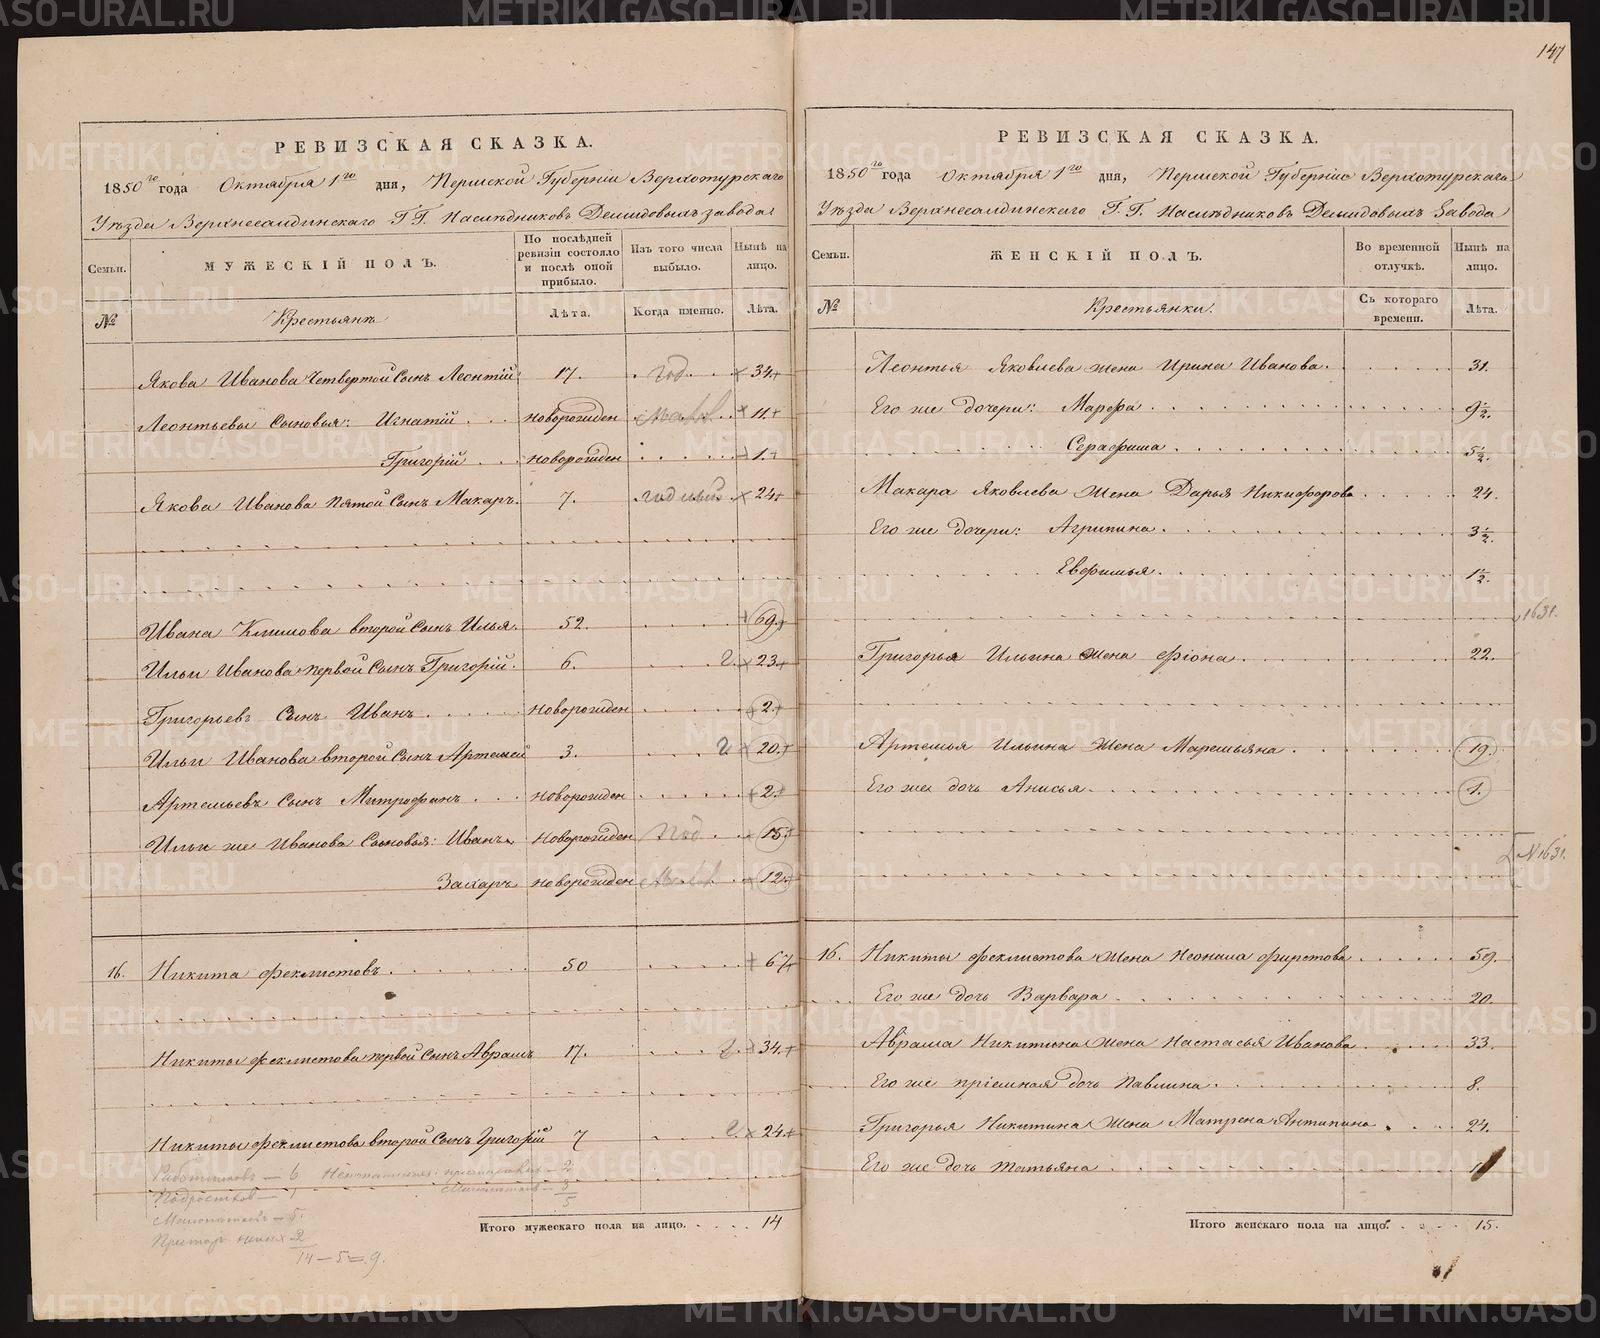 147
РЕВИЗСКАЯ СКАЗКА.
1850го года Октября 1го дня, Пермской Губерніи Верхотурскаго
Уѣзда Верхнесалдинскаго Г.Г. Наслѣдниковъ Демидовыхъ завода
Семьи. МУЖЕСКІЙ ПОЛЪ. По послѣдней ревизіи состояло и послѣ оной прибыло. Изъ того числа выбыло. Нынѣ на лицо.
№ Крестьянъ Лѣта. Когда именно. Лѣта.
Якова Иванова Четвертой Сынъ Леонтій 17. год 34
Леонтьевы Сыновья: Игнатій новорожден 11
Григорій новорожден 1.
Якова Иванова Пятой Сынъ Макаръ. 7. 24
Ивана Климова второй Сынъ Илья. 52. 69
Ильи Иванова первой Сынъ Григорій. 6. 23
Григорьевъ Сынъ Иванъ новорожден 2
Ильи Иванова второй Сынъ Артемей 3. 20
Артемьевъ Сынъ Митрофанъ новорожден 2
Ильи же Иванова Сыновья: Иванъ новорожден под 15
Захаръ новорожден 12
16. Никита Феклистовъ 50 67
Никиты Феклистова первой Сынъ Аврамъ 17. 34
Никиты Феклистова второй Сынъ Григорій 7 24
Работников — 6
Подростков — 1
Малолетков — 5
14 — 5 = 9.
Итого мужескаго пола на лицо. 14
РЕВИЗСКАЯ СКАЗКА.
1850го года Октября 1го дня, Пермской Губерніи Верхотурскаго
Уѣзда Верхнесалдинскаго Г.Г. Наслѣдниковъ Демидовыхъ Завода
Семьи. ЖЕНСКІЙ ПОЛЪ. Во временной отлучкѣ. Нынѣ на лицо.
№ Крестьянки. Съ котораго времени. Лѣта.
Леонтья Яковлева жена Ирина Иванова. 31.
Его же дочери: Марфа 9½.
Серафима 5½.
Макара Яковлева жена Дарья Никифорова 24.
Его же дочери: Агрипина 3½.
Евфимья 1½.
1631.
Григорья Ильина жена Фіона 22.
Артемья Ильина жена Маремьяна 19.
Его же дочь Анисья 1.
N 1631.
16. Никиты Феклистова жена Неонила Фирстова 59.
Его же дочь Варвара 20.
Аврама Никитина жена Настасья Иванова 33.
Его же пріемная дочь Павлина 8.
Григорья Никитина жена Матрена Антипина 24.
Его же дочь Татьяна
Итого женскаго пола на лицо. 15.